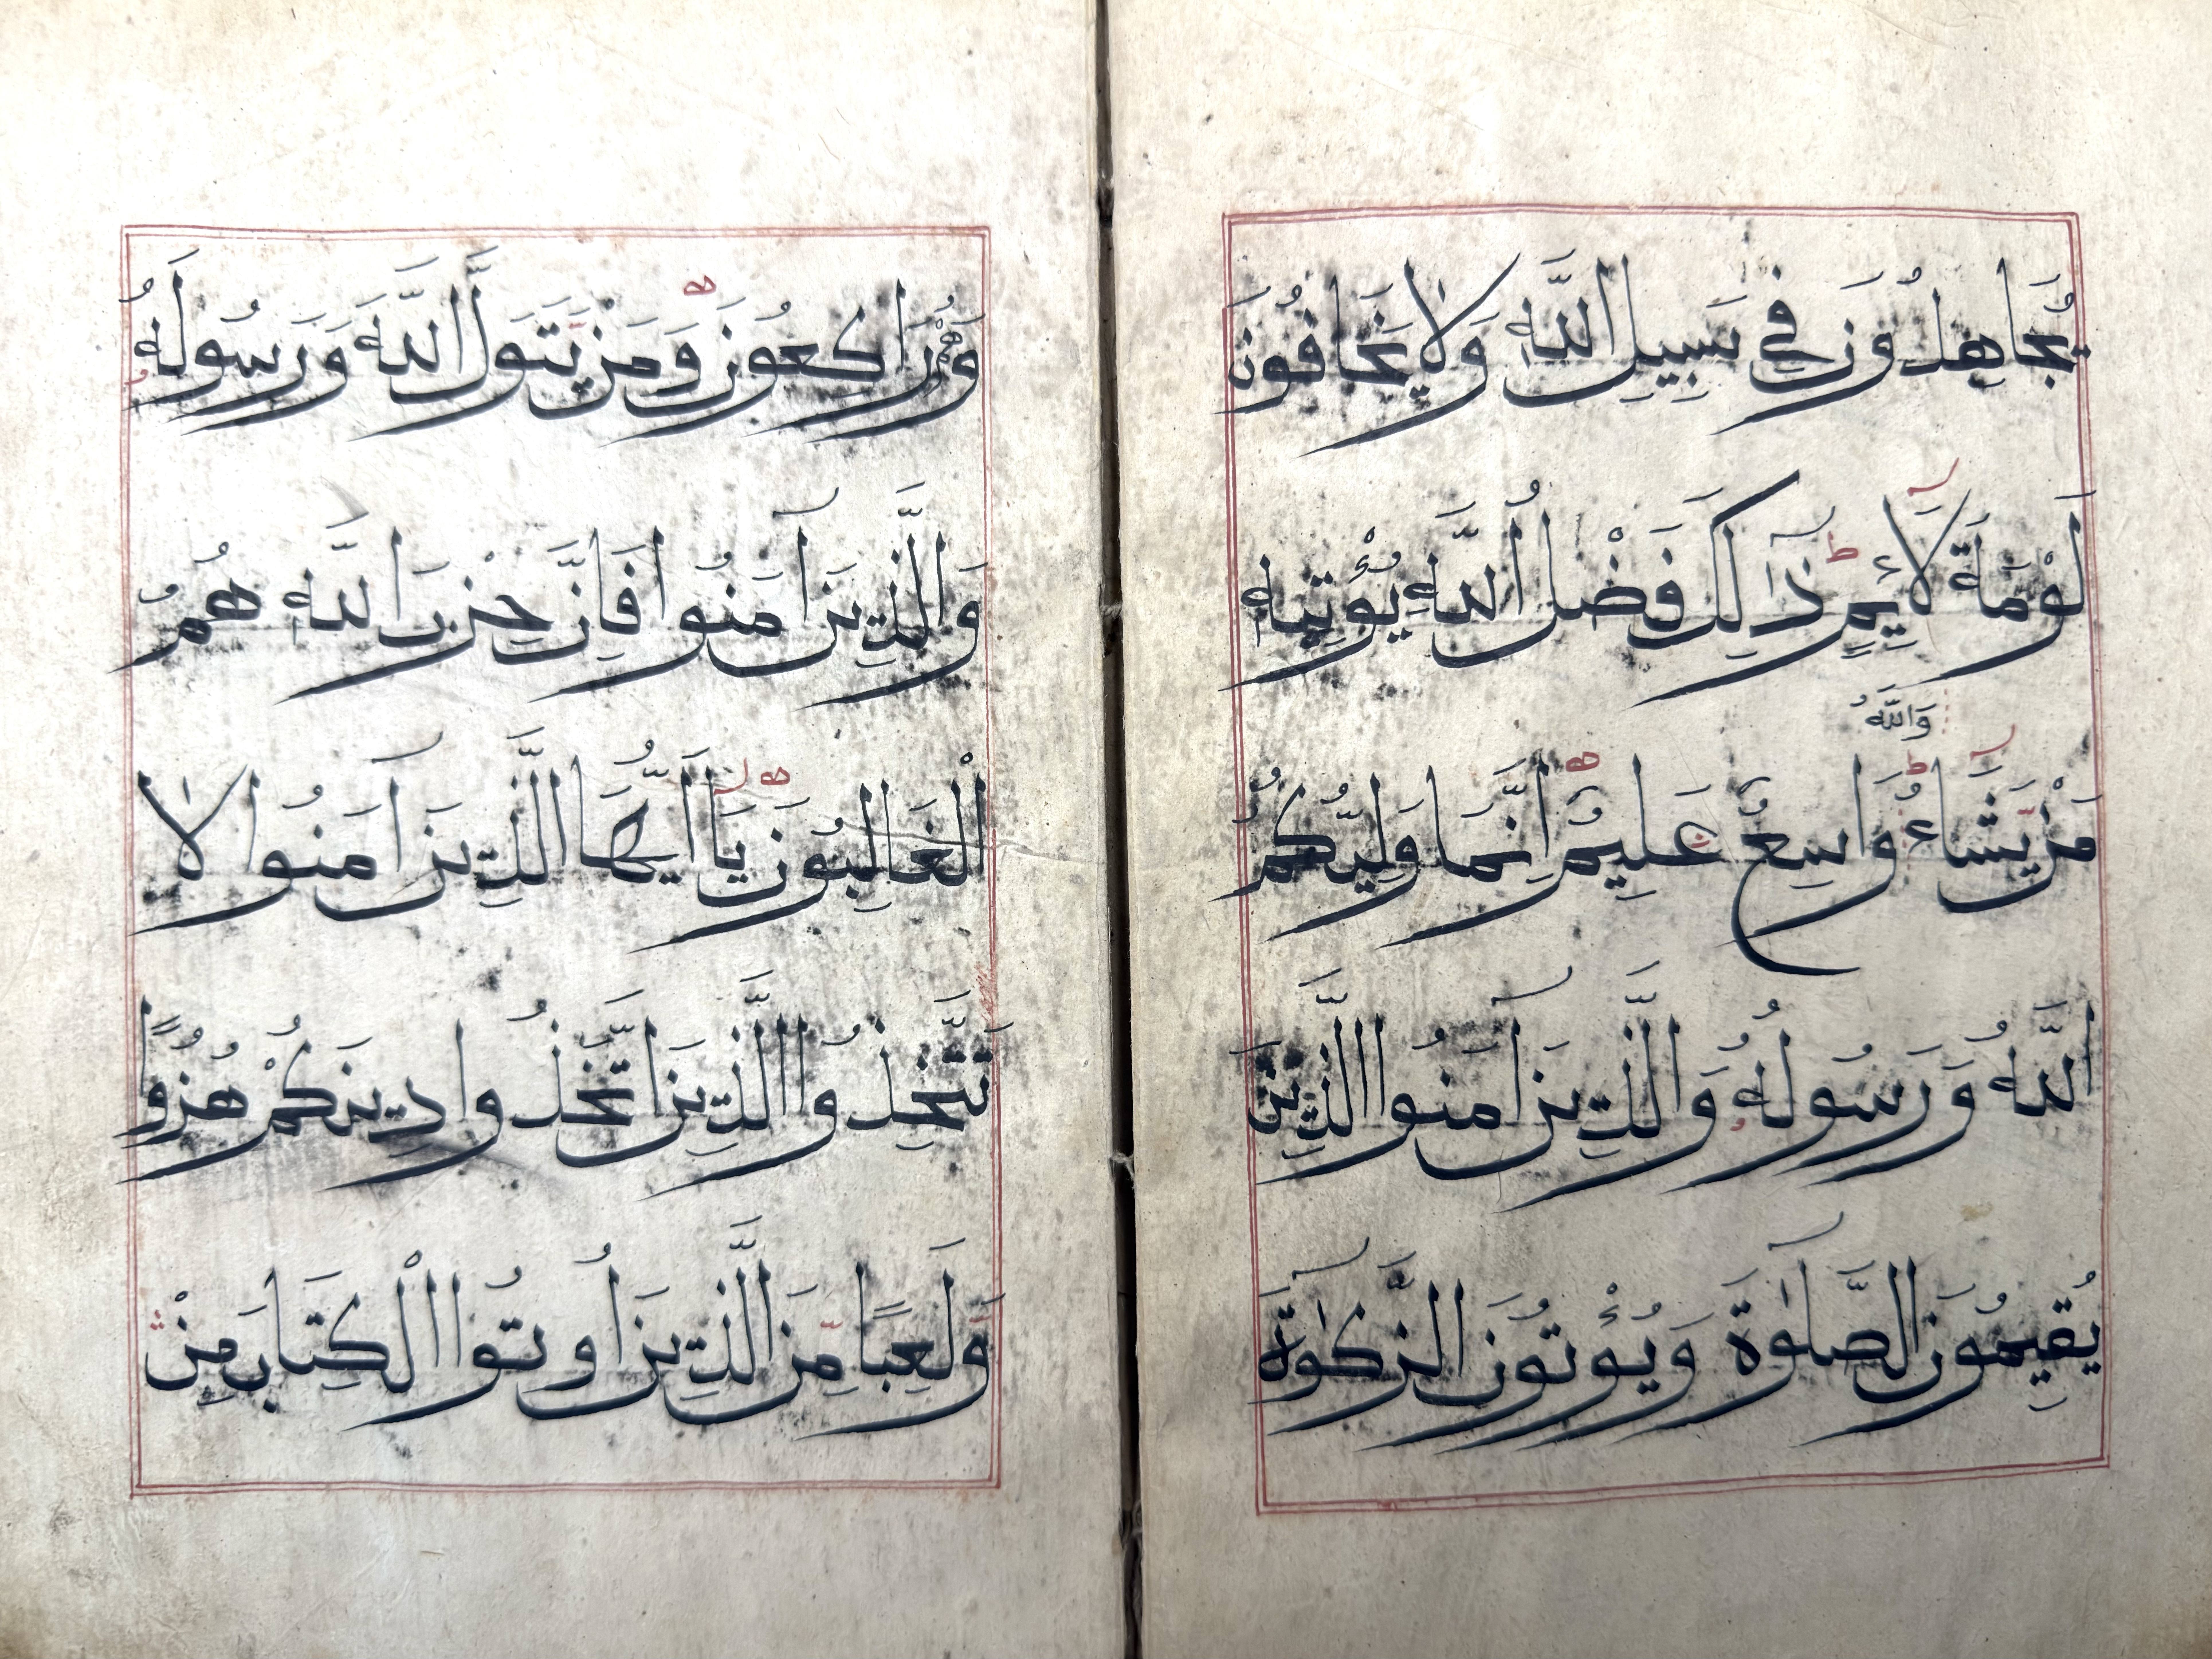 يُجَاهِدُونَ فِي سَبِيلِ اللَّهِ وَلَا يَخَافُونَ
لَوْمَةَ لَائِمٍ ط ذَٰلِكَ فَضْلُ اللَّهِ يُؤْتِيهِ
وَاللَّهُ
مَنْ يَّشَاءُ ط وَاسِعٌ عَلِيمٌ ه إِنَّمَا وَلِيُّكُمُ
اللَّهُ وَرَسُولُهُ وَالَّذِينَ آمَنُوا الَّذِينَ
يُقِيمُونَ الصَّلَوٰةَ وَيُؤْتُونَ الزَّكَوٰةَ
وَهُمْ رَاكِعُونَ ه وَمَنْ يَّتَوَلَّ اللَّهَ وَرَسُولَهُ
وَالَّذِينَ آمَنُوا فَإِنَّ حِزْبَ اللَّهِ هُمُ
الْغَالِبُونَ ه يَا أَيُّهَا الَّذِينَ آمَنُوا لَا
تَتَّخِذُوا الَّذِينَ اتَّخَذُوا دِينَكُمْ هُزُوًا
وَّلَعِبًا مِّنَ الَّذِينَ أُوتُوا الْكِتَابَ مِنْ